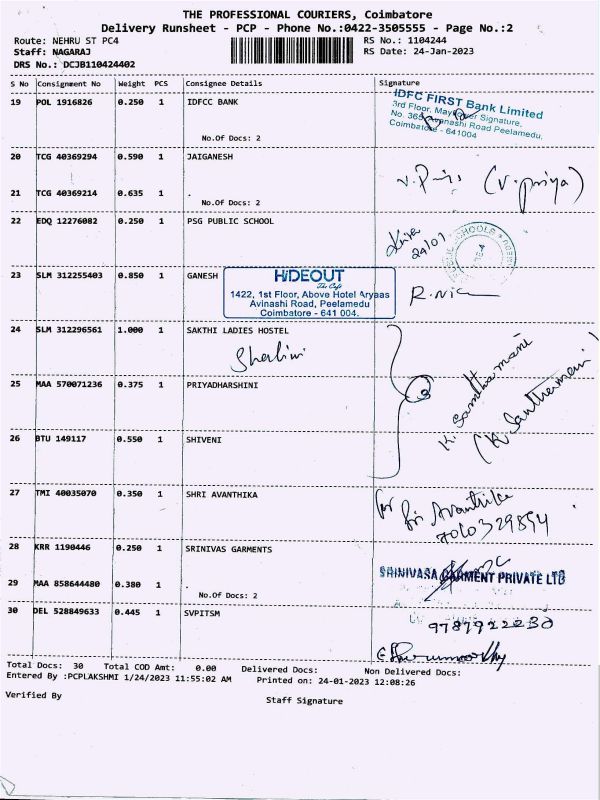 THE PROFESSIONAL COURIERS, Coimbatore
Delivery Runsheet - PCP - Phone No.:0422-3505555 - Page No.:2
Route: NEHRU ST PC4 RS No.: 1104244
Staff: NAGARAJ RS Date: 24-Jan-2023
DRS No.: DCJB110424402
S No Consignment No Weight PCS Consignee Details Signature
19 POL 1916826 0.250 1 IDFCC BANK
IDFC FIRST Bank Limited
3rd Floor, Signature,
Avinashi Road Peelamedu,
Coimbatore - 641004
No.Of Docs: 2
20 TCG 40369294 0.590 1 JAIGANESH
V. Priya (V.priya)
21 TCG 40369214 0.635 1 .
No.Of Docs: 2
22 EDQ 12276082 0.250 1 PSG PUBLIC SCHOOL
24/01
23 SLM 312255403 0.850 1 GANESH
HiDEOUT
The Cafe
1422, 1st Floor, Above Hotel Aryaas
Avinashi Road, Peelamedu
Coimbatore - 641 004.
24 SLM 312296561 1.000 1 SAKTHI LADIES HOSTEL
Shalini
K. Santhamani
(K. Santhamani)
25 MAA 570071236 0.375 1 PRIYADHARSHINI
26 BTU 149117 0.550 1 SHIVENI
27 TMI 40035070 0.350 1 SHRI AVANTHIKA
for Sri Avanthika
7010329894
28 KRR 1190446 0.250 1 SRINIVAS GARMENTS
SRINIVASA GARMENT PRIVATE LTD
29 MAA 858644480 0.380 1 .
No.Of Docs: 2
30 DEL 528849633 0.445 1 SVPITSM
9787922230
Total Docs: 30 Total COD Amt: 0.00 Delivered Docs: Non Delivered Docs:
Entered By :PCPLAKSHMI 1/24/2023 11:55:02 AM Printed on: 24-01-2023 12:08:26
Verified By Staff Signature